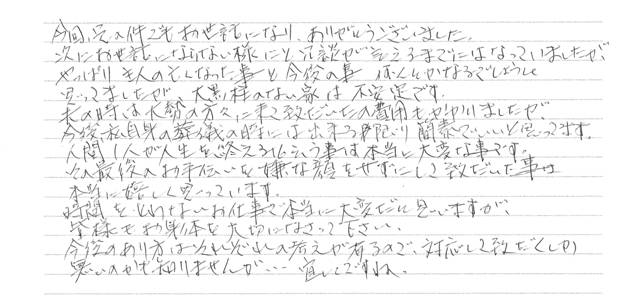 今回、父の件でもお世話になり、ありがとうございました。
次にお世話にならない様にと冗談が言えるまでにはなっていましたが、
やっぱり主人の亡くなった事と今後の事 何とかなるでしょうと
思ってましたが、大黒柱のない家は不安定です。
夫の時は大勢の方々に来て頂いたので費用もかかりましたが、
今後、私自身の葬儀の時には出来る限り簡素でいいと思ってます。
人間1人が人生を終えるという事は本当に大変な事です。
その最後のお手伝いを嫌な顔をせずにして頂だいた事は
本当に嬉しく思っています。
時間をとわないお仕事で本当に大変だと思いますが、
皆様もお身体を大切になさって下さい。
今後のあり方はそれぞれの考えが有るので、対応して頂だくしか
悪いのかも知りませんが… 宜しくですね。